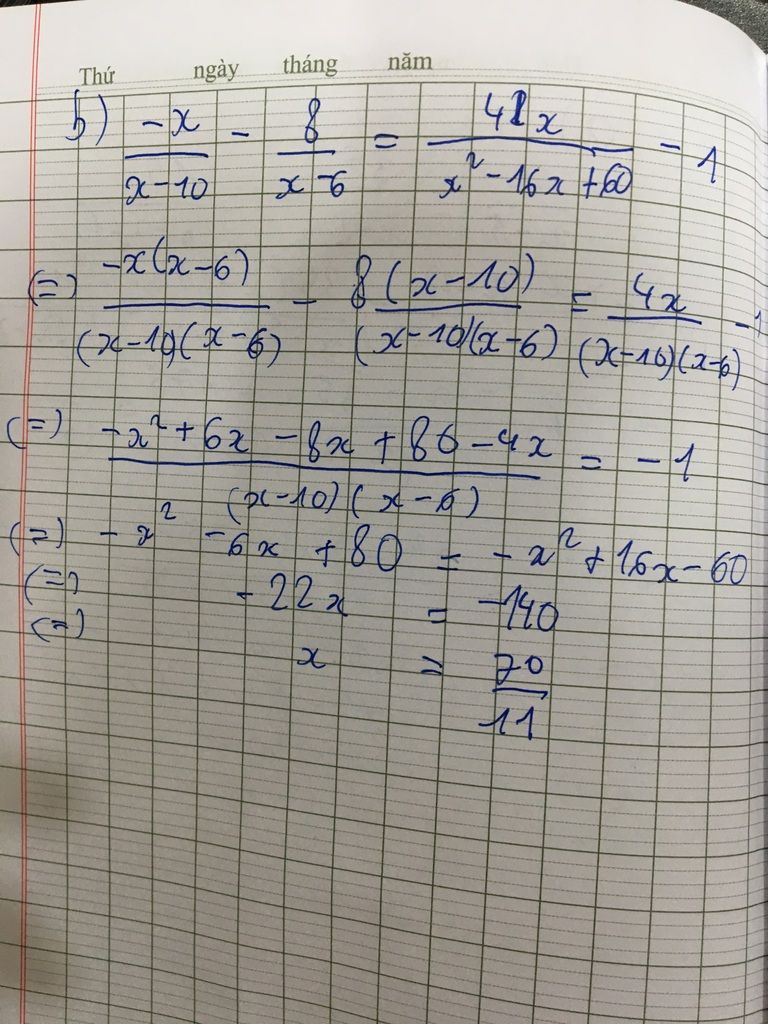 Thứ ngày tháng năm
b) -x/(x-10) - 8/(x-6) = 4x/(x²-16x+60) - 1
(=) -x(x-6)/((x-10)(x-6)) - 8(x-10)/((x-10)(x-6)) = 4x/((x-10)(x-6)) - 1
(=) (-x²+6x-8x+80-4x)/((x-10)(x-6)) = -1
(=) -x² -6x +80 = -x²+16x-60
(=) -22x = -140
(=) x = 70/11